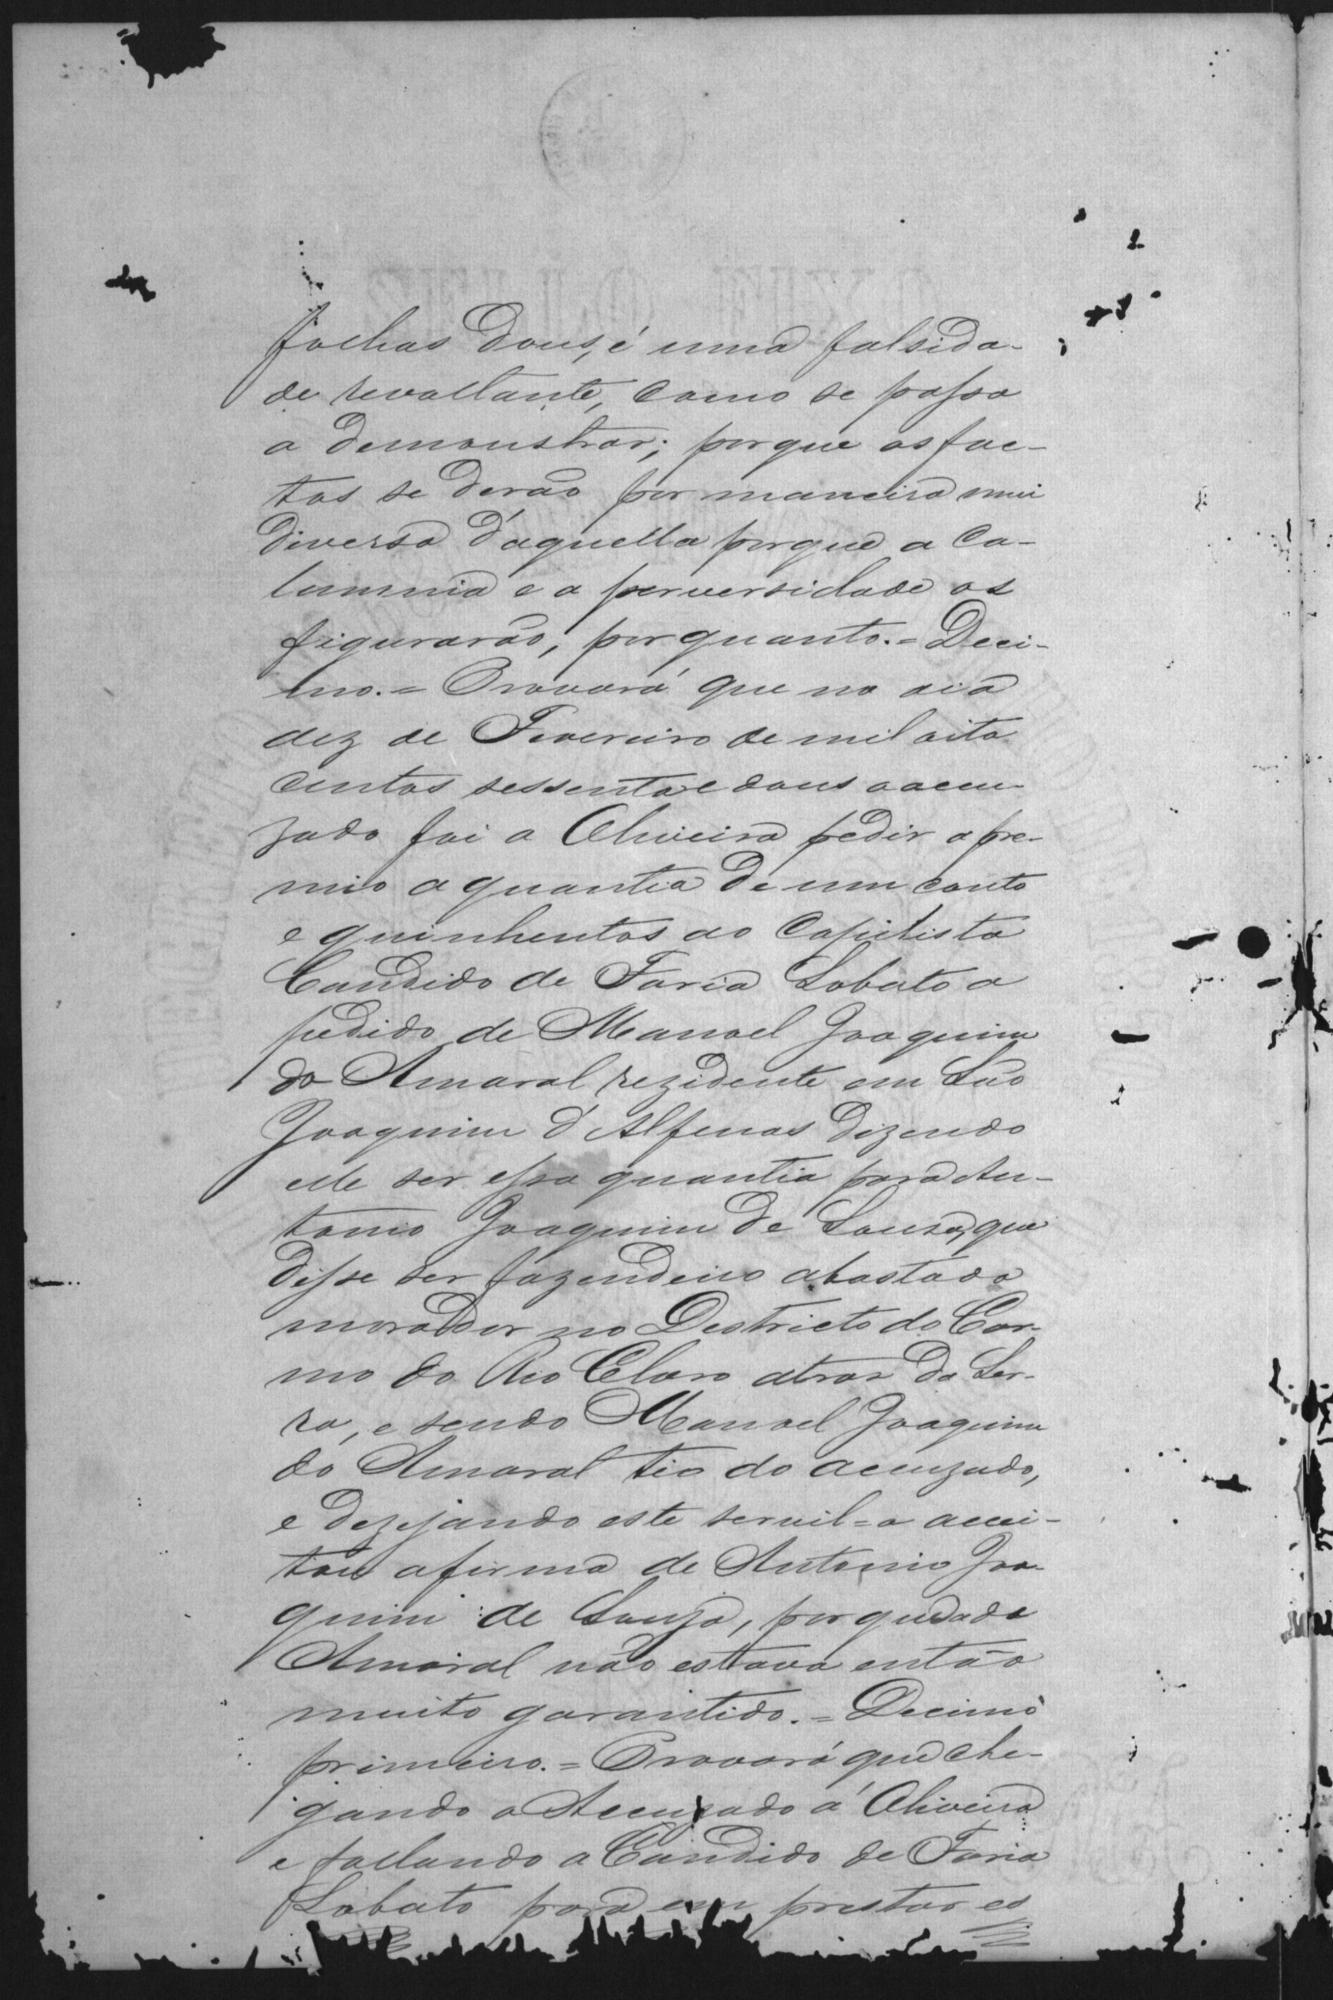 folhas dous, é uma falsida-
de revoltante, como se passa
a demonstrar; porque os fac-
tos se derão por maneira mui
diversa d'aquella porque a ca-
lumnia e a perversidade os
figurarão, porquanto.= Deci-
mo.= Provará que no dia
dez de Fevereiro de mil oito
centos sessenta e dous o accu-
zado foi a Oliveira pedir a pre-
mio a quantia de um conto
e quinhentos ao Capitalista
Candido de Faria Lobato a
pedido de Manoel Joaquim
do Amaral rezidente em São
Joaquim d'Alfenas dizendo
elle ser essa quantia para An-
tonio Joaquim de Sousa, que
disse ser fazendeiro abastado
morador no Destricto do Car-
mo do Rio Claro atras da Ser-
ra, e sendo Manoel Joaquim
do Amaral tio do accuzado,
e dezejando este servil=o accei-
tou a firma de Antonio Joa-
quim de Souza, porque dade
Amaral não estava então
muito garantido.= Decimo
primeiro.= Provará que che-
gando o Accuzado á Oliveira
e fallando a Candido de Faria
Lobato para em prestar es